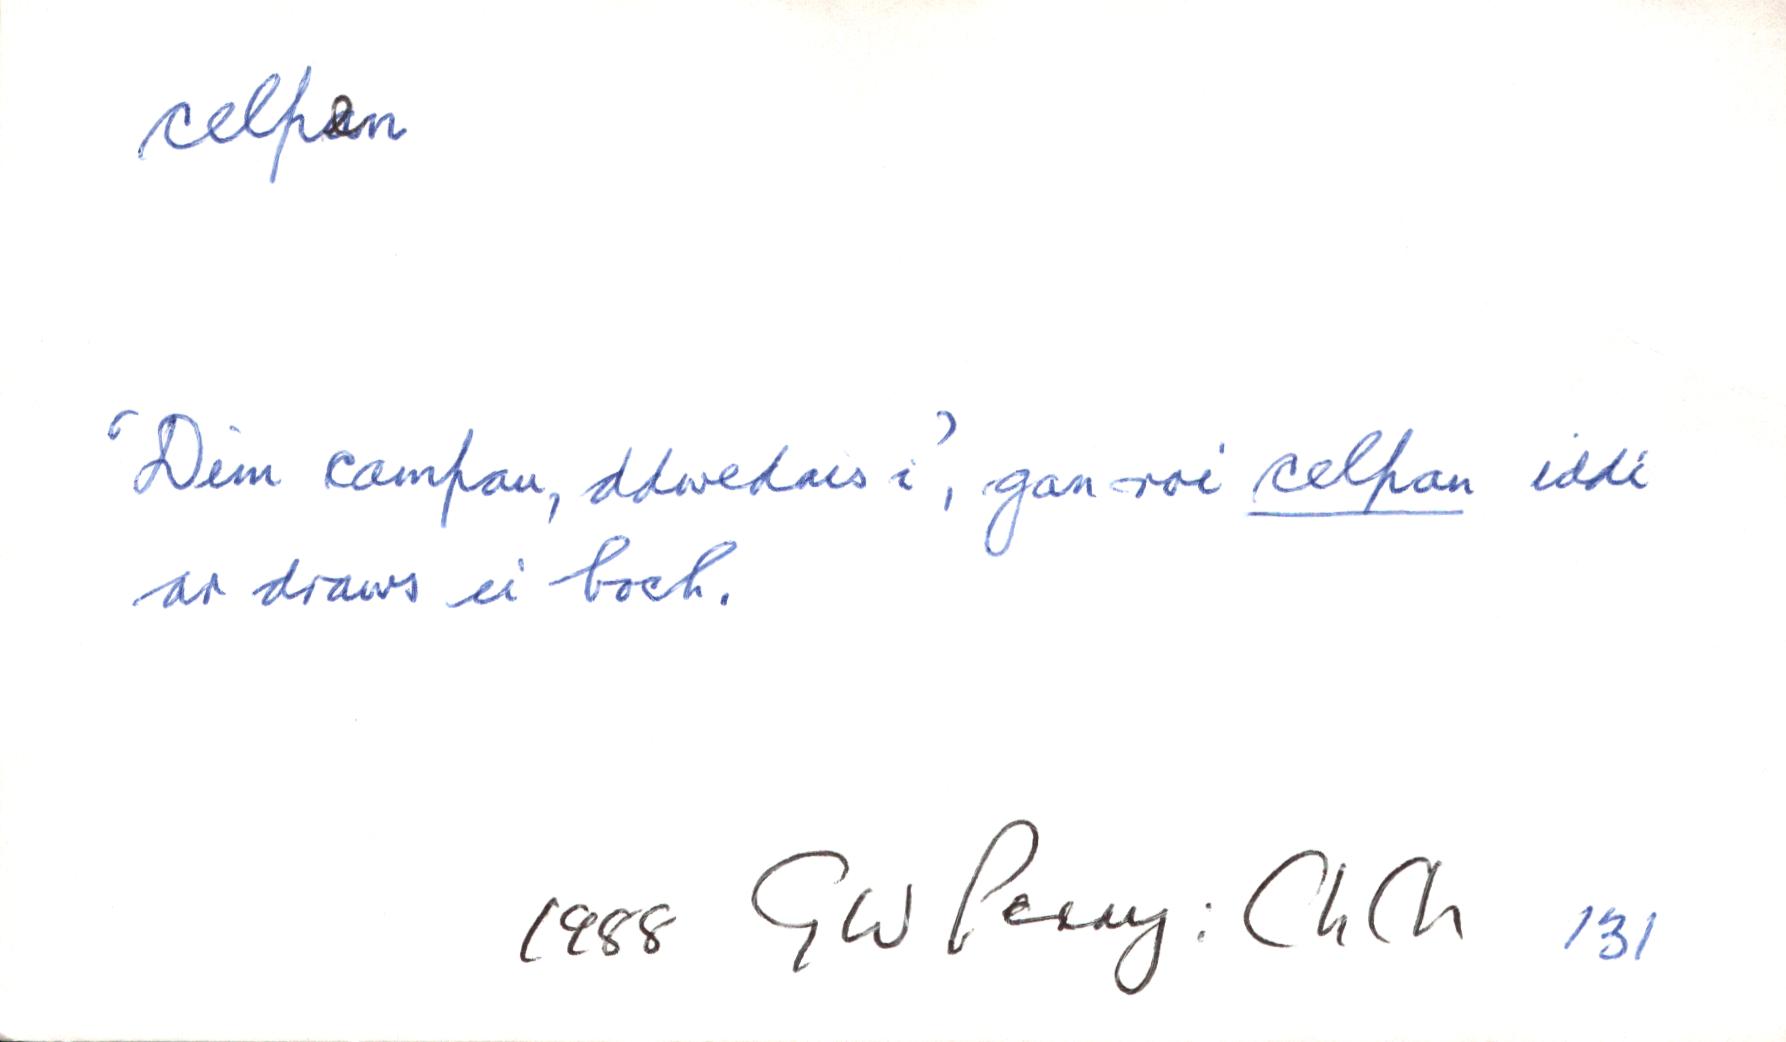 celpan
‘Dim campau, ddwedais i’, gan roi celpan iddi
ar draws ei boch.
1988 GW Perry: ChCh 131